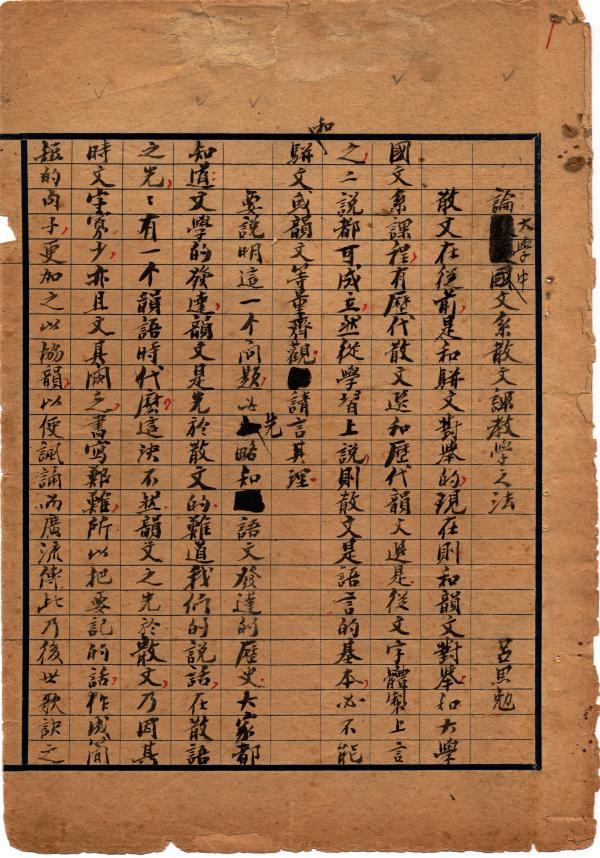 論大學中國文系散文課教學之法 呂思勉
散文在從前,是和駢文對舉的,現在則和韻文對舉。如大學
國文系課程,有歷代散文選和歷代韻文選是。從文字體製上言
之,二說都可成立,然從學習上說,則散文是語言的基本,必不能
和駢文或韻文等量齊觀。請言其理。
要說明這一个問題,必先略知語文發達的歷史。大家都
知道:文學的發達,韻文是先於散文的。難道我們的說話,在散語
之先,有一个韻語時代麼?這決不然。韻文之先於散文,乃因其
時文字寡少,亦且文具闕乏,書寫艱難,所以把要記的話,作成簡
短的句子,更加之以協韻,以便諷誦而廣流傳。此乃後世歌訣之